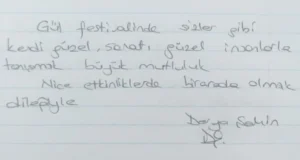 Gül festivalinde sizler gibi
kendi güzel, sanatı güzel insanlarla
tanışmak büyük mutluluk
Nice etkinliklerde birarada olmak
dileğiyle
Derya Şahin